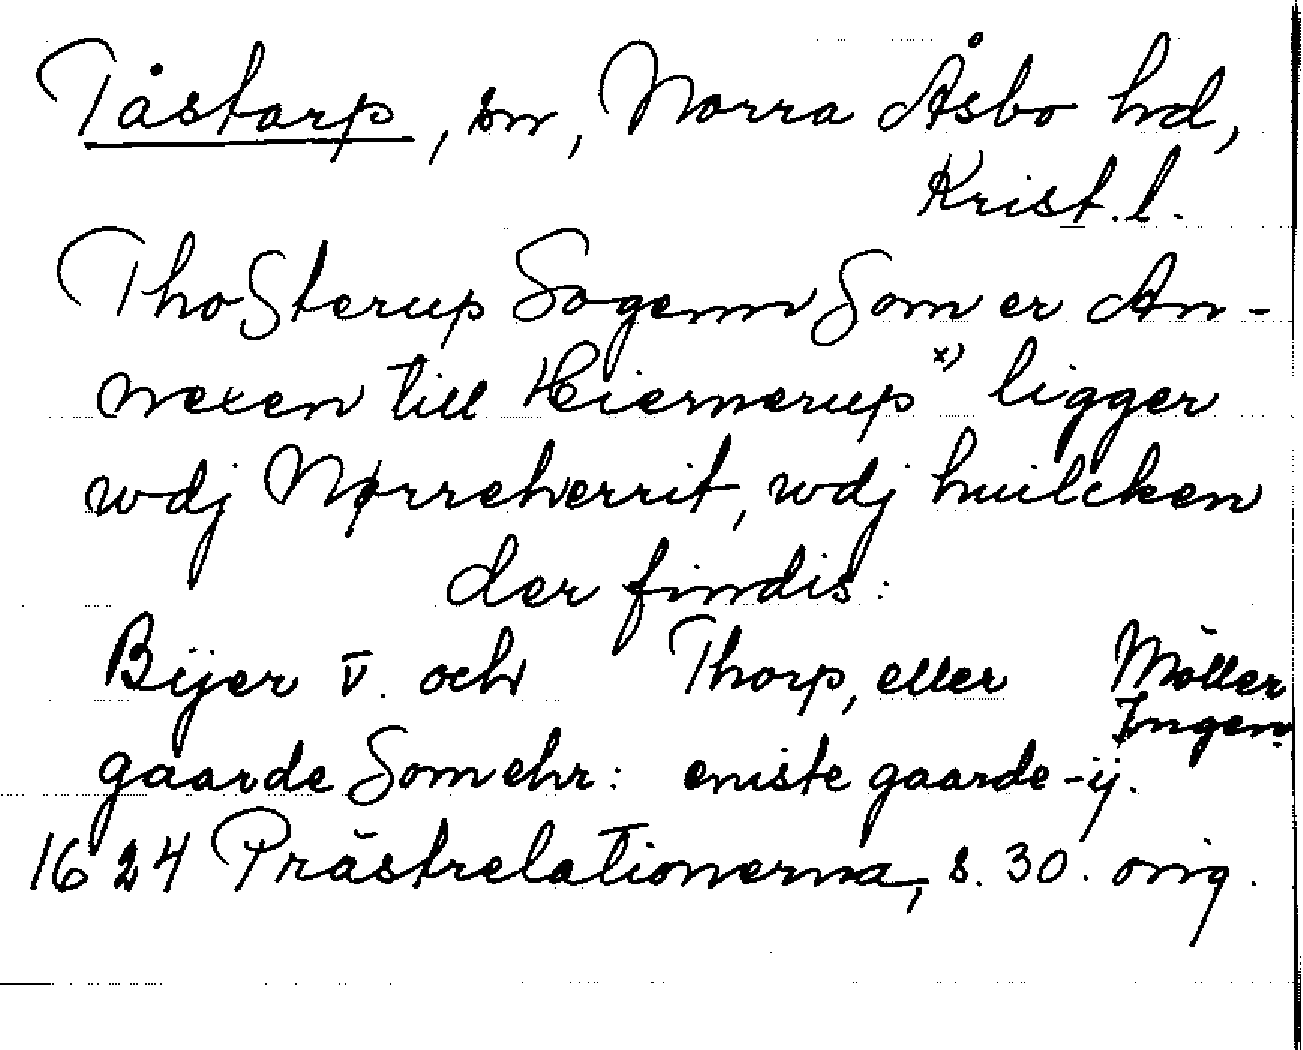 Tåstarp, sn, Norra Åsbo hd,
Krist. l.
ThoSterup Sogenn Som er An-
nexen till Hiernerup x) ligger
wdj Nørreherrit, wdj huilcken
der findis:
Bijer v. och Thorp, eller Möller
Ingen.
gaarde Som ehr: eniste gaarde - ij.
1624 Prästrelationerna, s. 30. orig.